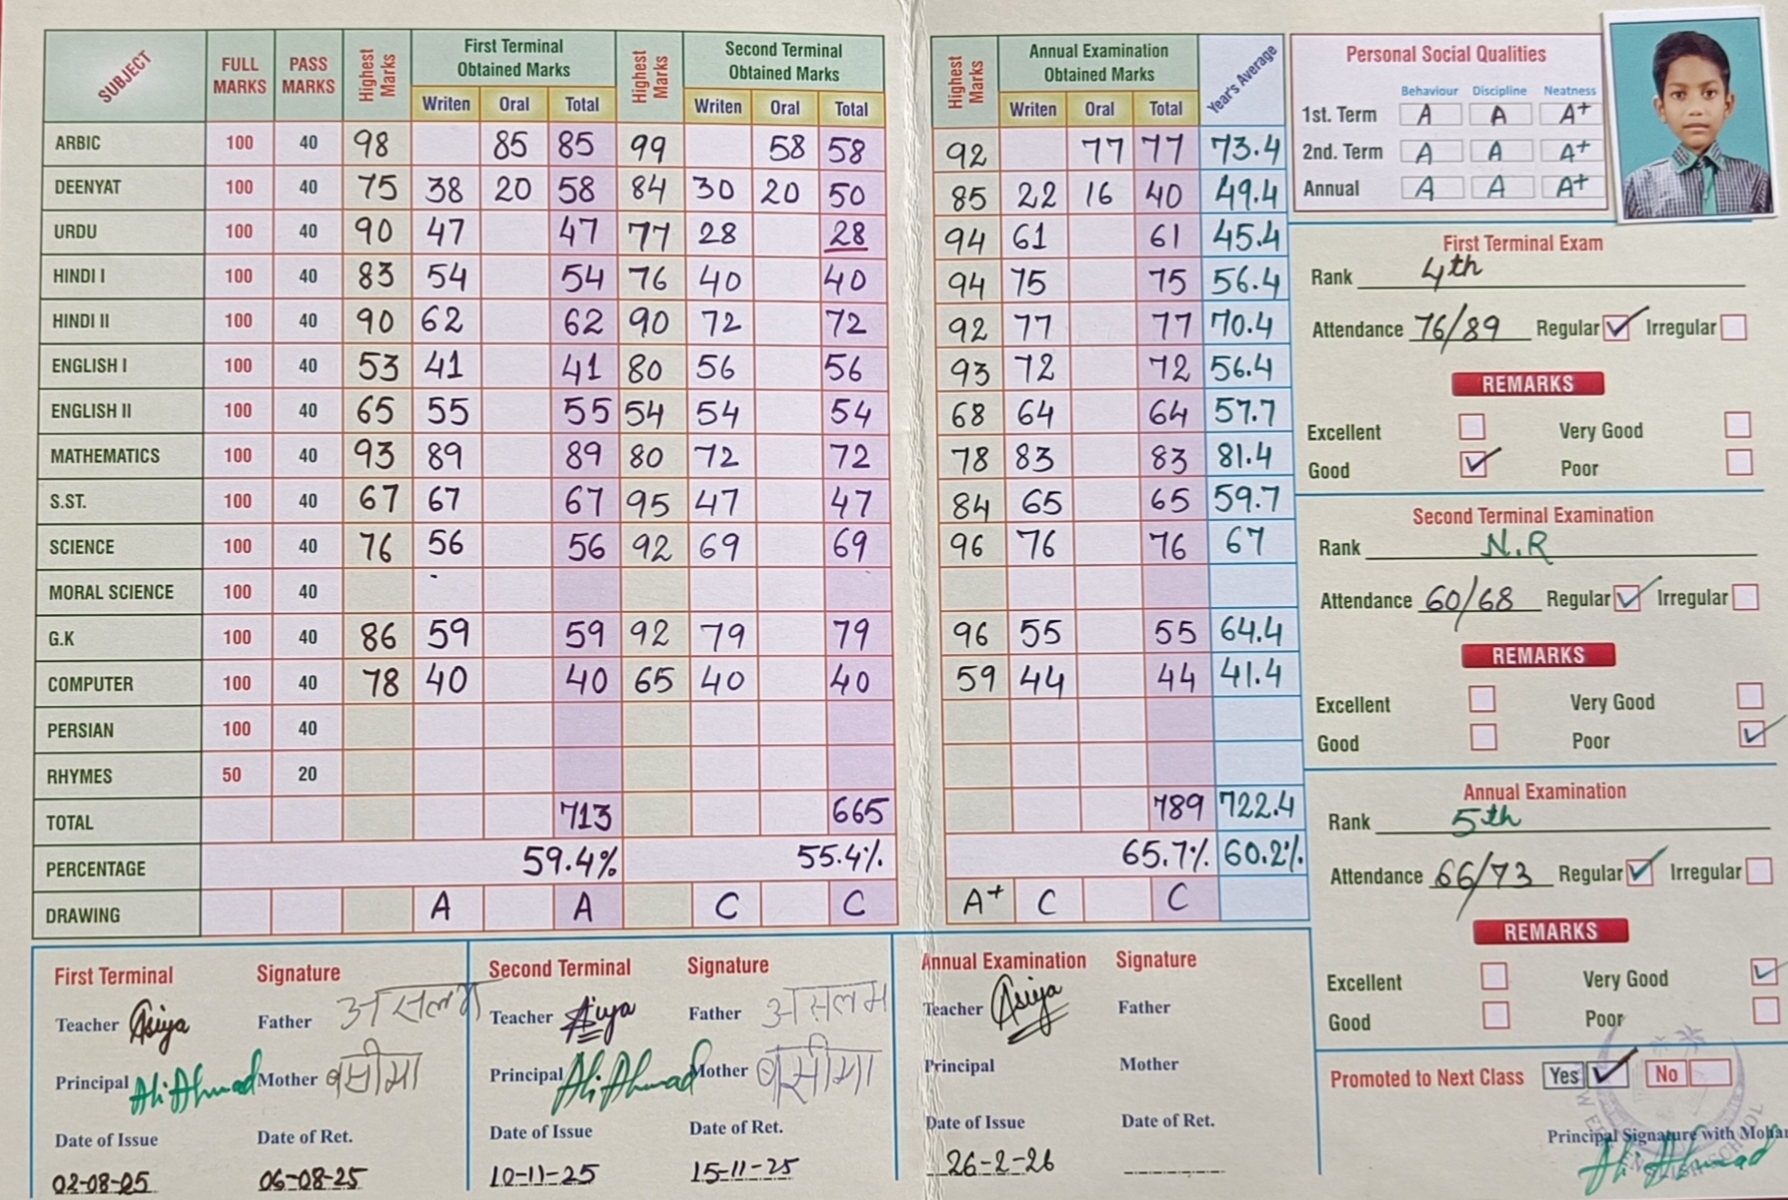 SUBJECT FULL MARKS PASS MARKS Highest Marks First Terminal Obtained Marks Highest Marks Second Terminal Obtained Marks Highest Marks Annual Examination Obtained Marks Year's Average
Writen Oral Total Writen Oral Total Writen Oral Total
ARBIC 100 40 98 85 85 99 58 58 92 77 77 73.4
DEENYAT 100 40 75 38 20 58 84 30 20 50 85 22 16 40 49.4
URDU 100 40 90 47 47 77 28 28 94 61 61 45.4
HINDI I 100 40 83 54 54 76 40 40 94 75 75 56.4
HINDI II 100 40 90 62 62 90 72 72 92 77 77 70.4
ENGLISH I 100 40 53 41 41 80 56 56 93 72 72 56.4
ENGLISH II 100 40 65 55 55 54 54 54 68 64 64 57.7
MATHEMATICS 100 40 93 89 89 80 72 72 78 83 83 81.4
S.ST. 100 40 67 67 67 95 47 47 84 65 65 59.7
SCIENCE 100 40 76 56 56 92 69 69 96 76 76 67
MORAL SCIENCE 100 40
G.K 100 40 86 59 59 92 79 79 96 55 55 64.4
COMPUTER 100 40 78 40 40 65 40 40 59 44 44 41.4
PERSIAN 100 40
RHYMES 50 20
TOTAL 713 665 789 722.4
PERCENTAGE 59.4% 55.4% 65.7% 60.2%
DRAWING A A C C A+ C C
Personal Social Qualities
Behaviour Discipline Neatness
1st. Term A A A+
2nd. Term A A A+
Annual A A A+
First Terminal Exam
Rank 4th
Attendance 76/89 Regular Irregular
REMARKS
Excellent Very Good
Good Poor
Second Terminal Examination
Rank N.R
Attendance 60/68 Regular Irregular
REMARKS
Excellent Very Good
Good Poor
Annual Examination
Rank 5th
Attendance 66/73 Regular Irregular
REMARKS
Excellent Very Good
Good Poor
Promoted to Next Class Yes No
Principal Signature with Mohar
Ali Ahmad
First Terminal Signature
Teacher Asiya Father असलम
Principal Ali Ahmad Mother
Date of Issue Date of Ret.
02-08-25 06-08-25
Second Terminal Signature
Teacher Asiya Father असलम
Principal Ali Ahmad Mother
Date of Issue Date of Ret.
10-11-25 15-11-25
Annual Examination Signature
Teacher Asiya Father
Principal Mother
Date of Issue Date of Ret.
26-2-26